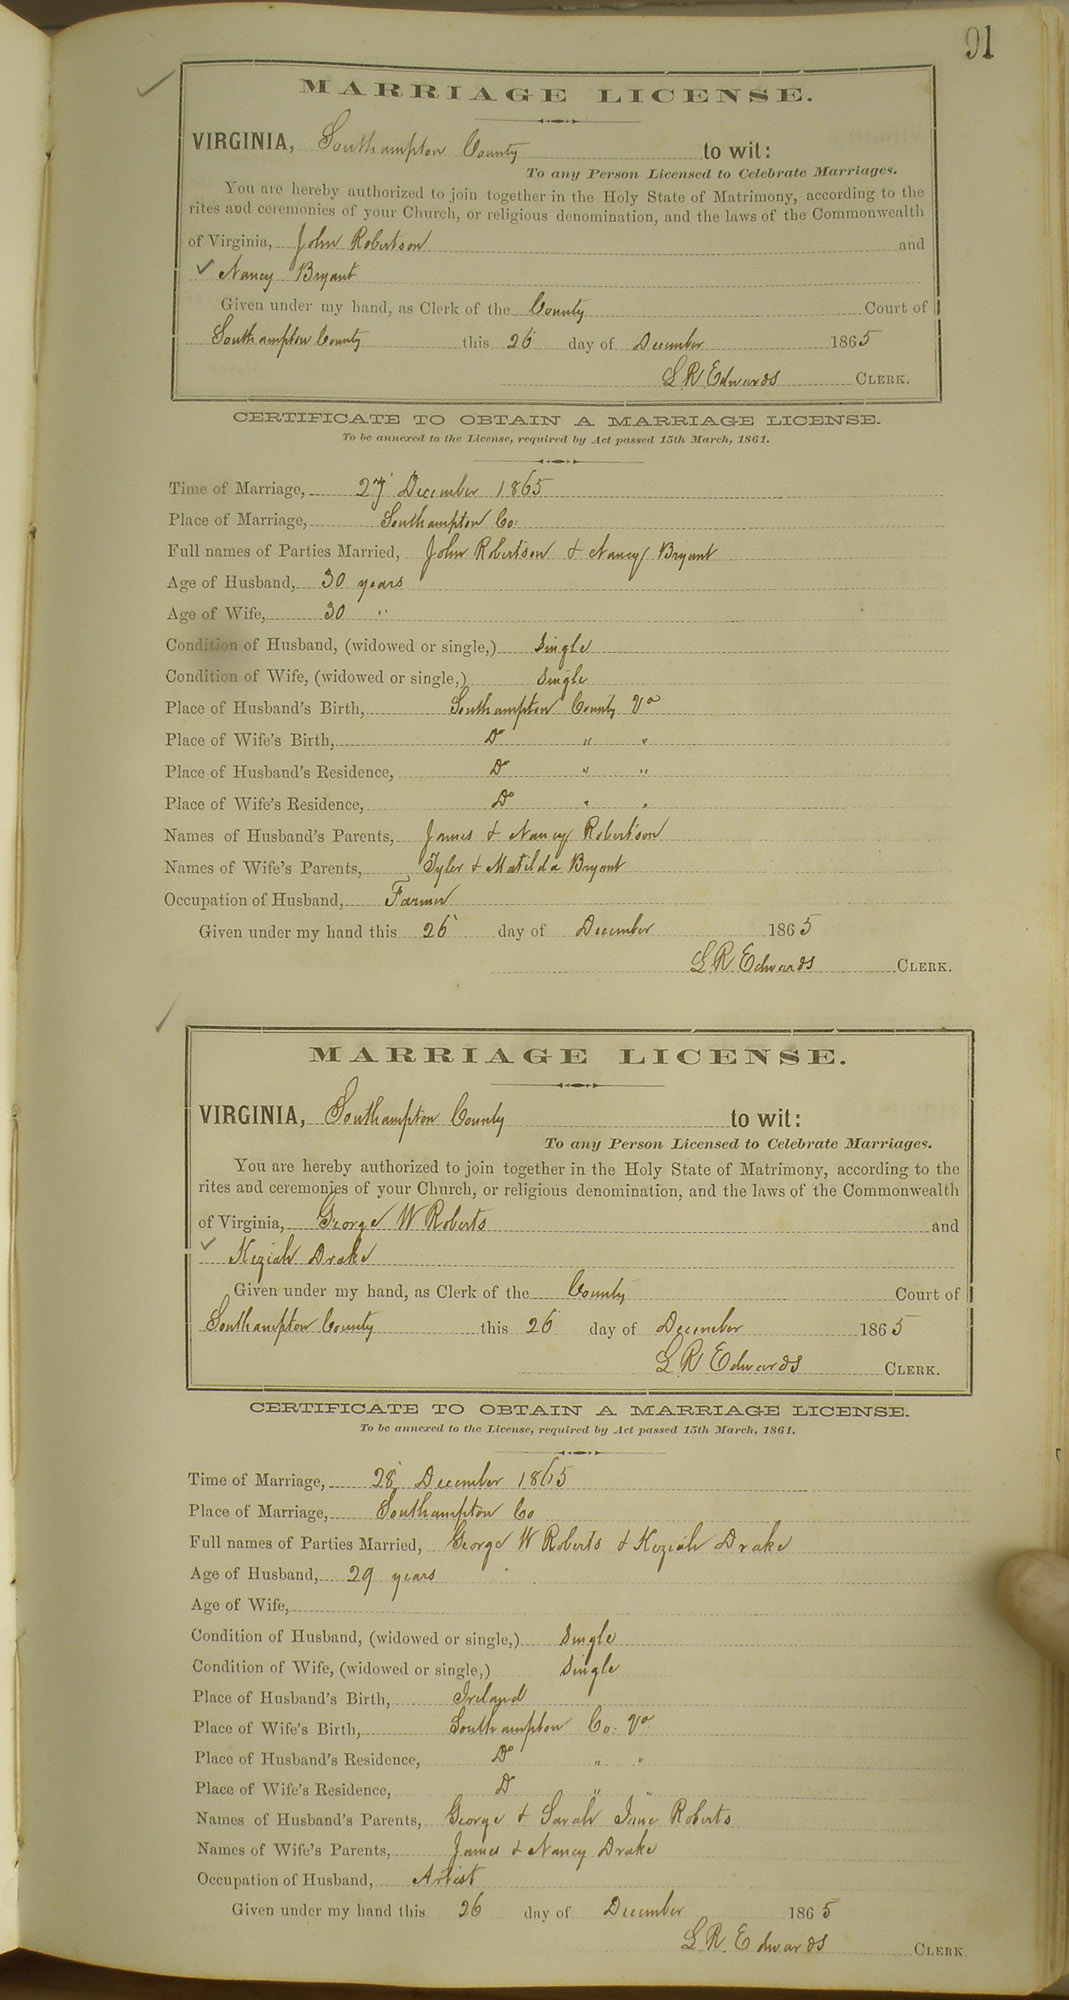 91
MARRIAGE LICENSE.
VIRGINIA, Southampton County to wit:
To any Person Licensed to Celebrate Marriages.
You are hereby authorized to join together in the Holy State of Matrimony, according to the
rites and ceremonies of your Church, or religious denomination, and the laws of the Commonwealth
of Virginia, John Robertson and
✓ Nancy Bryant
Given under my hand, as Clerk of the County Court of
Southampton County this 26 day of December 1865
L R Edwards CLERK.
CERTIFICATE TO OBTAIN A MARRIAGE LICENSE.
To be annexed to the License, required by Act passed 15th March, 1861.
Time of Marriage, 27 December 1865
Place of Marriage, Southampton Co:
Full names of Parties Married, John Robertson & Nancy Bryant
Age of Husband, 30 years
Age of Wife, 30 "
Condition of Husband, (widowed or single,) Single
Condition of Wife, (widowed or single,) Single
Place of Husband's Birth, Southampton County Va
Place of Wife's Birth, Do " "
Place of Husband's Residence, Do " "
Place of Wife's Residence, Do " "
Names of Husband's Parents, James & Nancy Robertson
Names of Wife's Parents, Tyler & Matilda Bryant
Occupation of Husband, Farmer
Given under my hand this 26 day of December 1865
L R Edwards CLERK.
MARRIAGE LICENSE.
VIRGINIA, Southampton County to wit:
To any Person Licensed to Celebrate Marriages.
You are hereby authorized to join together in the Holy State of Matrimony, according to the
rites and ceremonies of your Church, or religious denomination, and the laws of the Commonwealth
of Virginia, George W Roberts and
✓ Keziah Drake
Given under my hand, as Clerk of the County Court of
Southampton County this 26 day of December 1865
L R Edwards CLERK.
CERTIFICATE TO OBTAIN A MARRIAGE LICENSE.
To be annexed to the License, required by Act passed 15th March, 1861.
Time of Marriage, 28 December 1865
Place of Marriage, Southampton Co
Full names of Parties Married, George W Roberts & Keziah Drake
Age of Husband, 29 years
Age of Wife,
Condition of Husband, (widowed or single,) Single
Condition of Wife, (widowed or single,) Single
Place of Husband's Birth, Ireland
Place of Wife's Birth, Southampton Co: Va
Place of Husband's Residence, Do " "
Place of Wife's Residence, Do " "
Names of Husband's Parents, George & Sarah Jane Roberts
Names of Wife's Parents, James & Nancy Drake
Occupation of Husband, Artist
Given under my hand this 26 day of December 1865
L R. Edwards CLERK